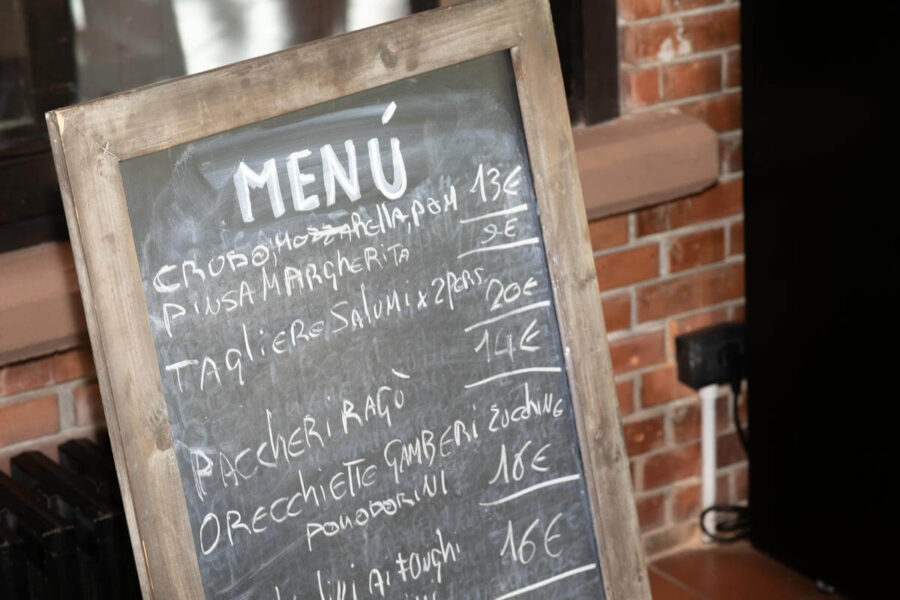 MENÚ
CRUDO, MOZZARELLA, POM 13€
PINSA MARGHERITA 9€
TAGLIERE SALUMI x 2PERS 20€
PACCHERI RAGÒ 14€
ORECCHIETTE GAMBERI ZUCCHINE
POMODORINI 16€
AI FUNGHI 16€